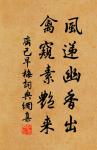 風遞幽香出
禽窺素艷來
齊己早梅詞典網集